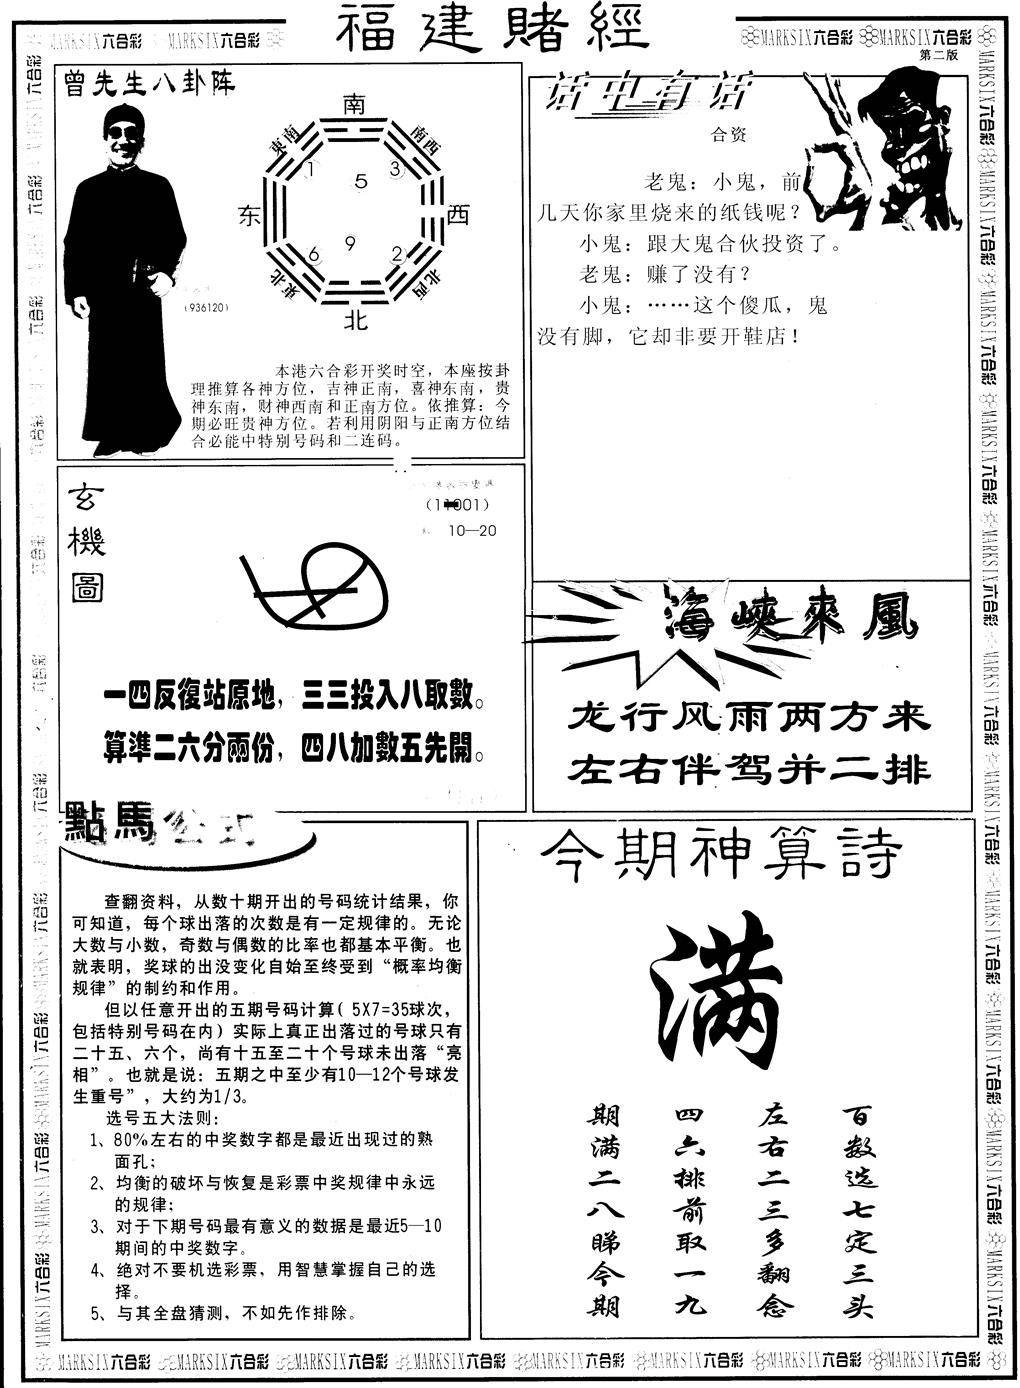 福建賭經
MARKSIX六合彩 MARKSIX六合彩
MARKSIX六合彩 MARKSIX六合彩
第二版
曾先生八卦阵
南
東南
南西
1
3
5
东
西
6
9
2
東北
北西
北
(936120)
本港六合彩开奖时空，本座按卦
理推算各神方位，吉神正南，喜神东南，贵
神东南，财神西南和正南方位。依推算：今
期必旺贵神方位。若利用阴阳与正南方位结
合必能中特别号码和二连码。
话中有话
合资
老鬼：小鬼，前
几天你家里烧来的纸钱呢？
小鬼：跟大鬼合伙投资了。
老鬼：赚了没有？
小鬼：……这个傻瓜，鬼
没有脚，它却非要开鞋店！
玄機圖
10—20
一四反復站原地，三三投入八取數。
算準二六分兩份，四八加數五先開。
海峽來風
龙行风雨两方来
左右伴驾并二排
點馬公式
查翻资料，从数十期开出的号码统计结果，你
可知道，每个球出落的次数是有一定规律的。无论
大数与小数，奇数与偶数的比率也都基本平衡。也
就表明，奖球的出没变化自始至终受到“概率均衡
规律”的制约和作用。
但以任意开出的五期号码计算( 5X7=35球次，
包括特别号码在内）实际上真正出落过的号球只有
二十五、六个，尚有十五至二十个号球未出落“亮
相”。也就是说：五期之中至少有10—12个号球发
生重号”，大约为1/3。
选号五大法则：
1、80%左右的中奖数字都是最近出现过的熟
面孔；
2、均衡的破坏与恢复是彩票中奖规律中永远
的规律；
3、对于下期号码最有意义的数据是最近5—10
期间的中奖数字。
4、绝对不要机选彩票，用智慧掌握自己的选
择。
5、与其全盘猜测，不如先作排除。
今期神算詩
满
百数选七定三头
左右二三多翻念
四六排前取一九
期满二八睇今期
MARKSIX六合彩 MARKSIX六合彩 MARKSIX六合彩 MARKSIX六合彩 MARKSIX六合彩 MARKSIX六合彩 MARKSIX六合彩 MARKSIX六合彩